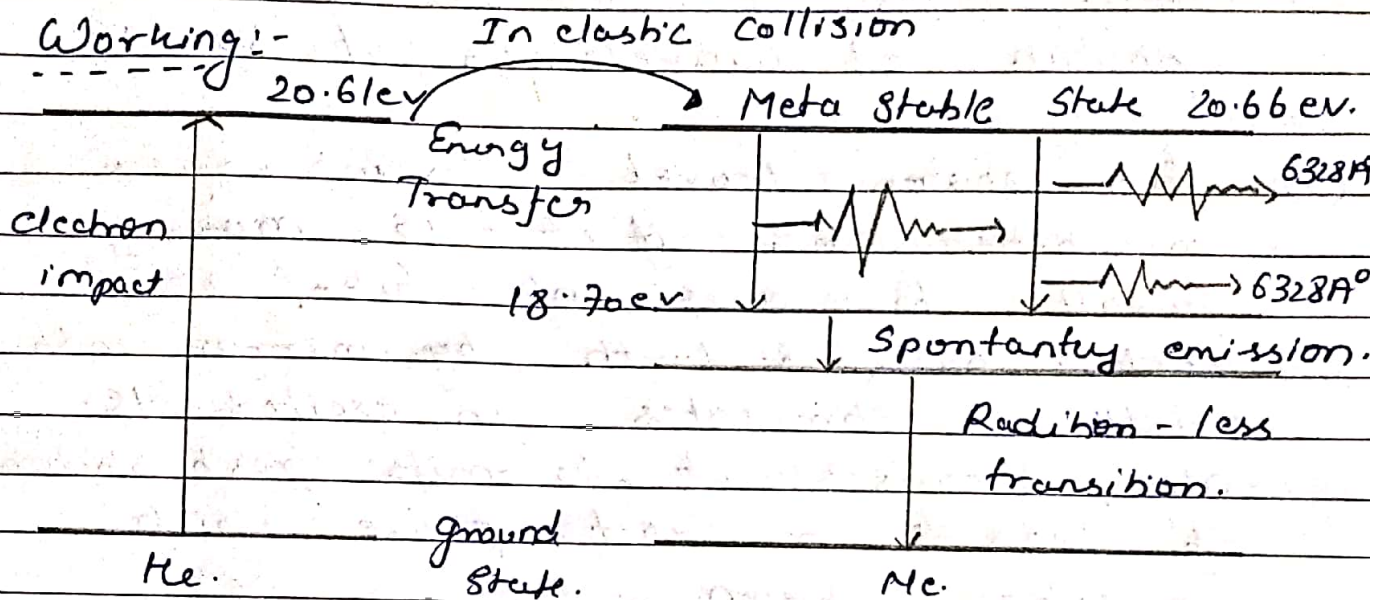 Working:-
In elastic Collision
20.61ev
Meta Stable State 20.66 ev.
Energy
Transfer
6328A
electron
impact
18.70ev
6328A°
Spontantuy emission.
Radition - less
transition.
ground
State.
He.
Ne.